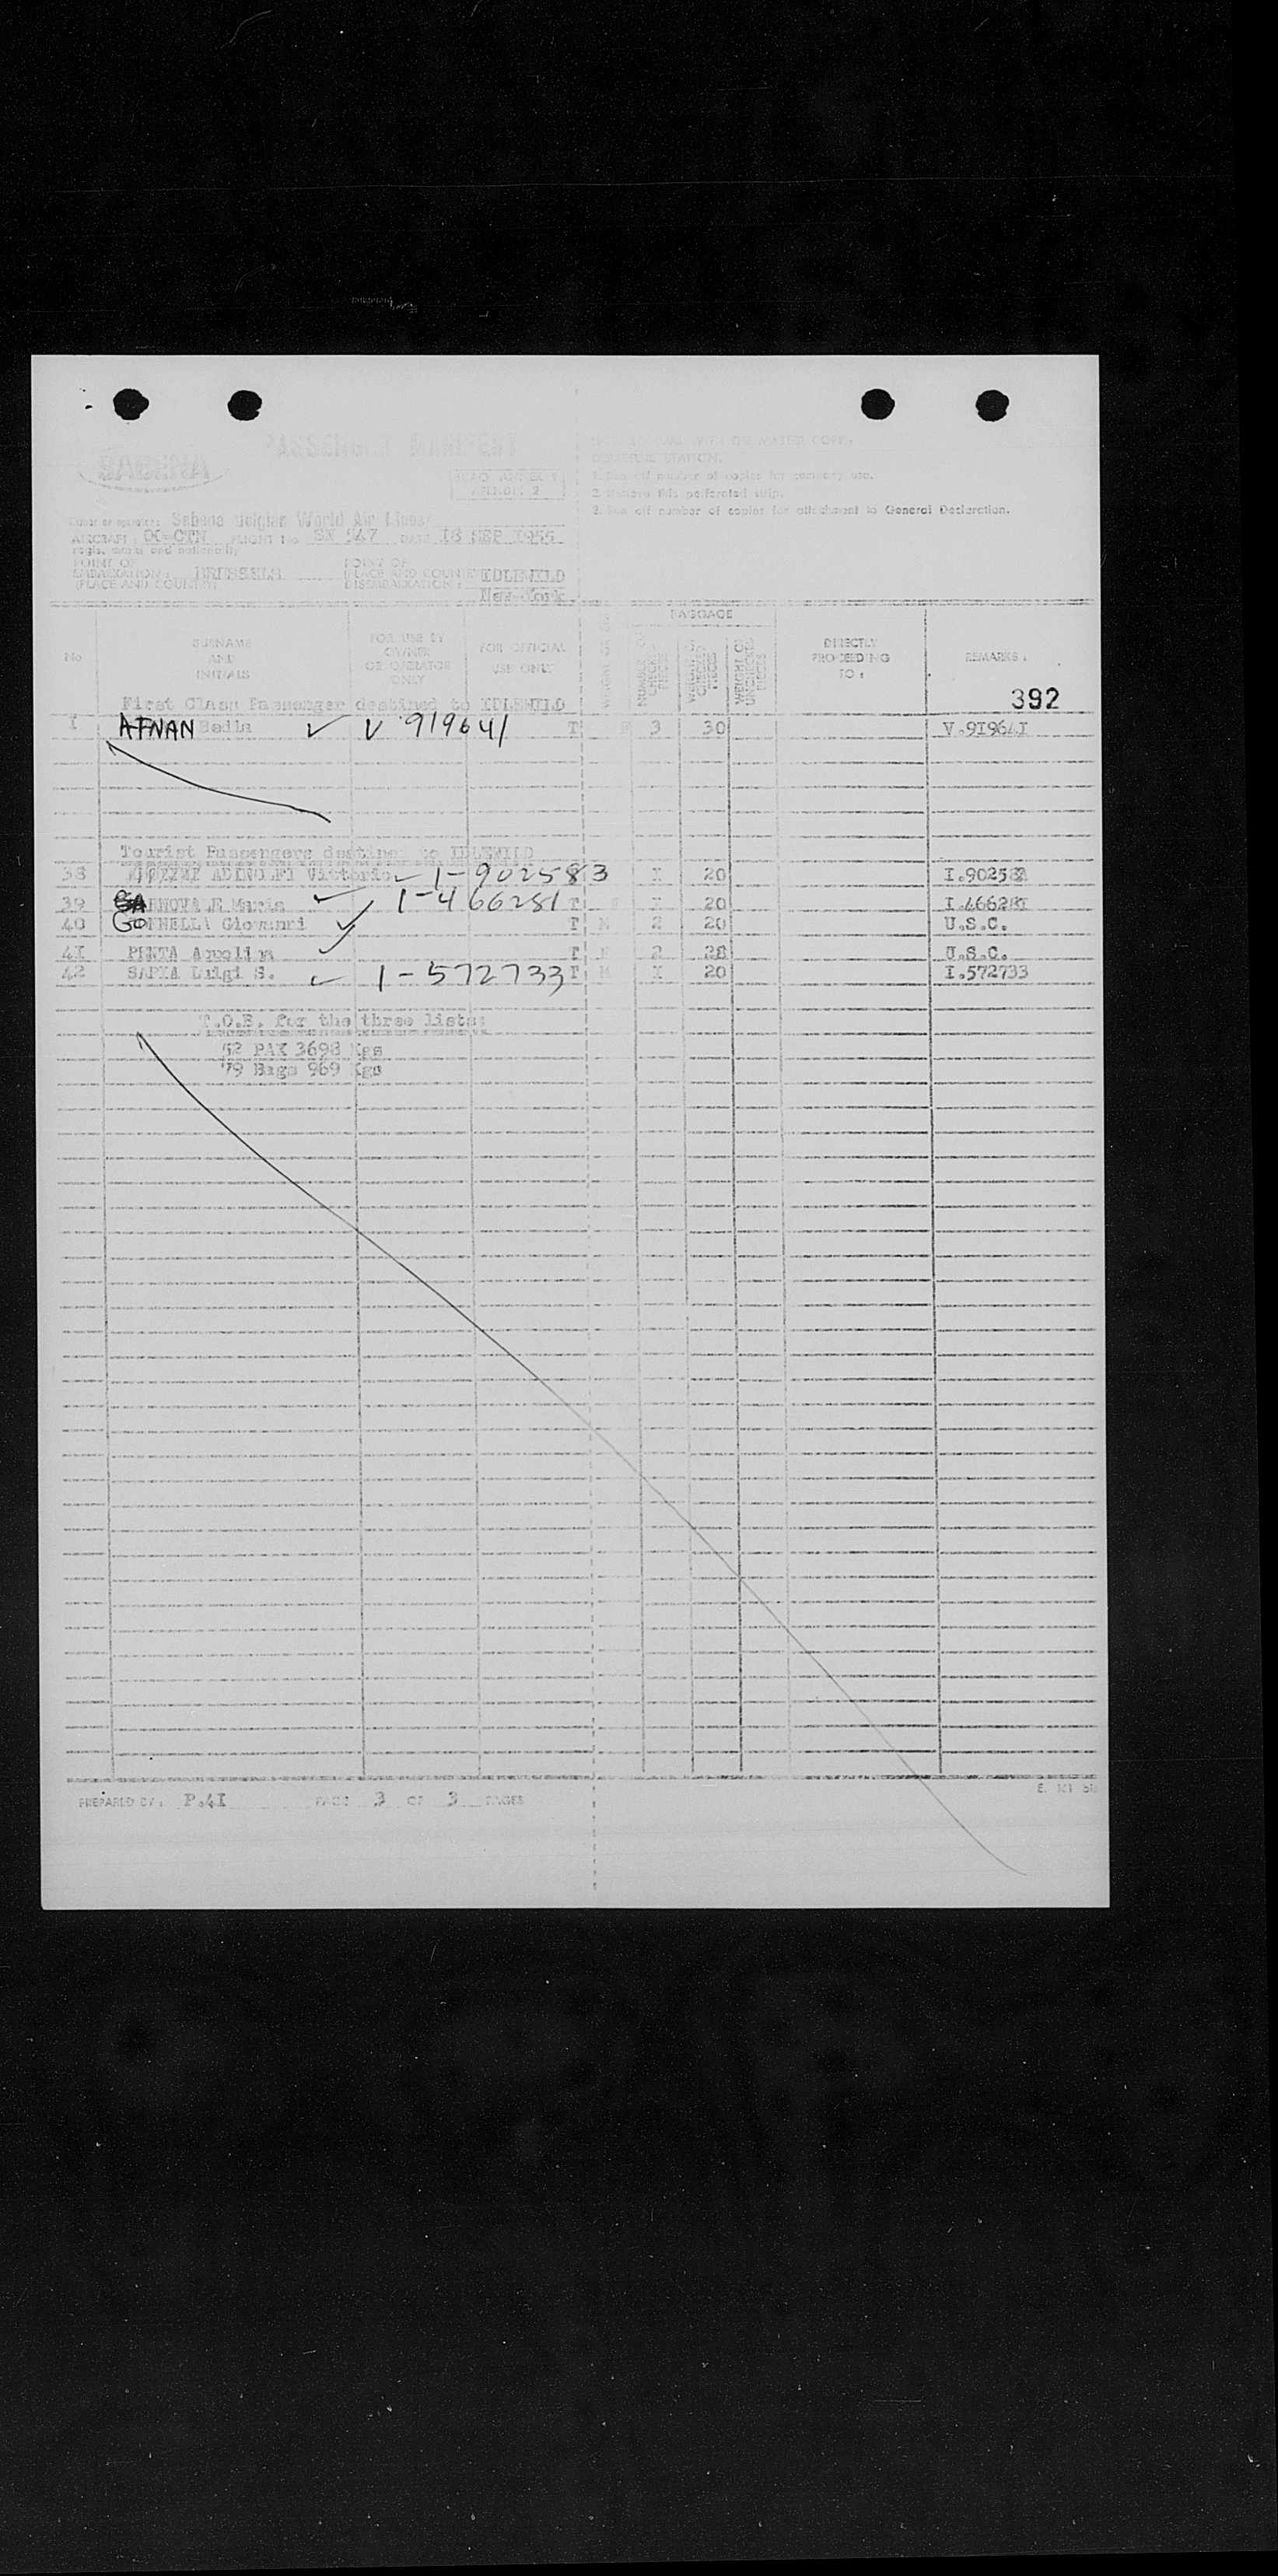 SABENA
PASSENGER MANIFEST
ICAO ANNEX 9
APPENDIX 2
DEPARTURE STATION.
1. Run off number of copies for company use.
2. Remove this perforated strip.
3. Run off number of copies for attachment to General Declaration.
Sabena Belgian World Air Lines
AIRCRAFT: OO-CTN FLIGHT No SN 547 DATE 16 SEP 1955
regis. marks and nationality
POINT OF EMBARKATION: BRUSSELS
(PLACE AND COUNTRY)
POINT OF DISEMBARKATION: IDLEWILD
(PLACE AND COUNTRY) New-York
No
SURNAME AND INITIALS
FOR USE BY OWNER OR OPERATOR ONLY
FOR OFFICIAL USE ONLY
BAGGAGE
NUMBER OF CHECKED PIECES
WEIGHT OF CHECKED PIECES
WEIGHT OF UNCHECKED PIECES
DIRECTLY PROCEEDING TO:
REMARKS:
392
First Class Passenger destined to IDLEWILD
1 Bedia V 919641 T F 3 30 V.919641
Tourist Passengers destined to IDLEWILD
38 ADINOLFI Vittorio 1-902583 I 20 I.902583
39 Maria 1-466281 T F I 20 I.466281
40 Giovanni T M 2 20 U.S.C.
41 PENTA T F 2 28 U.S.C.
42 Luigi S. 1-572733 T M I 20 I.572733
T.O.B. for the three lists:
52 PAX 3698 Kgs
79 Bags 969 Kgs
PREPARED BY: P.41 PAGE 3 OF 3 PAGES